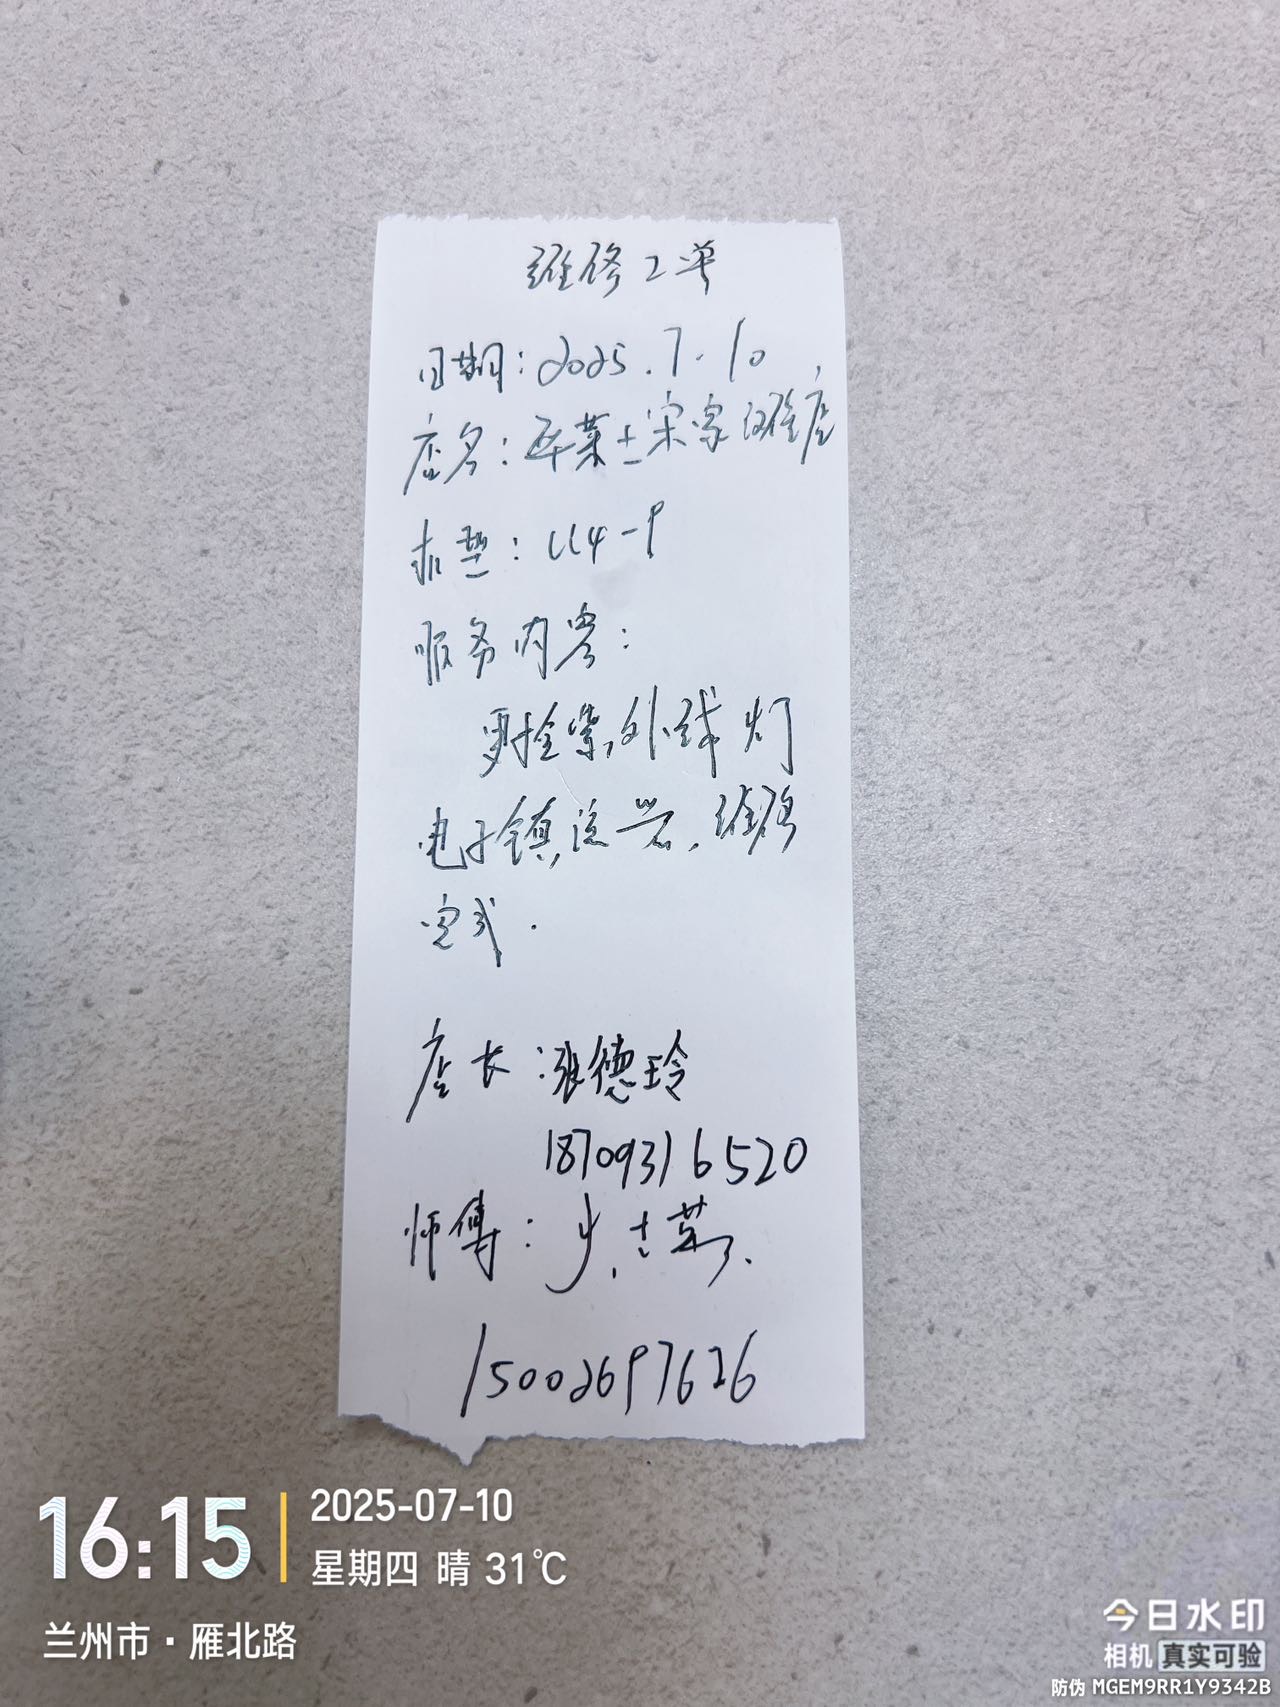 维修工单
日期：2025.7.10
店名：毕莱士宋家滩店
机型：U4-P
服务内容：
更换紫外线灯
电子镇流器，维修
完成.
店长：张德玲
18709316520
师傅：
15002697626
16:15
2025-07-10
星期四 晴 31℃
兰州市·雁北路
今日水印
相机 真实可验
防伪 MGEM9RR1Y9342B